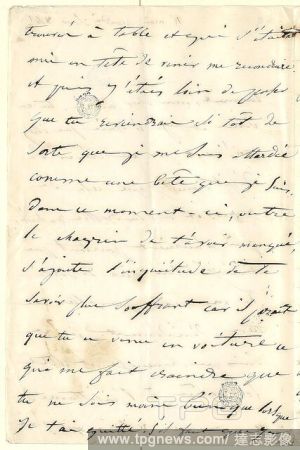 trouvée à table et qui s'était
mis en tête de venir me reconduire
et puis j'étais loin de penser
que tu reviendrais si tôt de
sorte que je me suis attardée
comme une bête que je suis.
Dans ce moment-ci, outre
le chagrin de t'avoir manqué,
s'ajoute l'inquiétude de te
savoir plus souffrant car il paraît
que tu es venu en voiture ce
qui me fait craindre que
tu ne sois moins bien que lorsque
je t'ai quitté. Il faut que
TPG
www.tpgnews.com / 達志影像